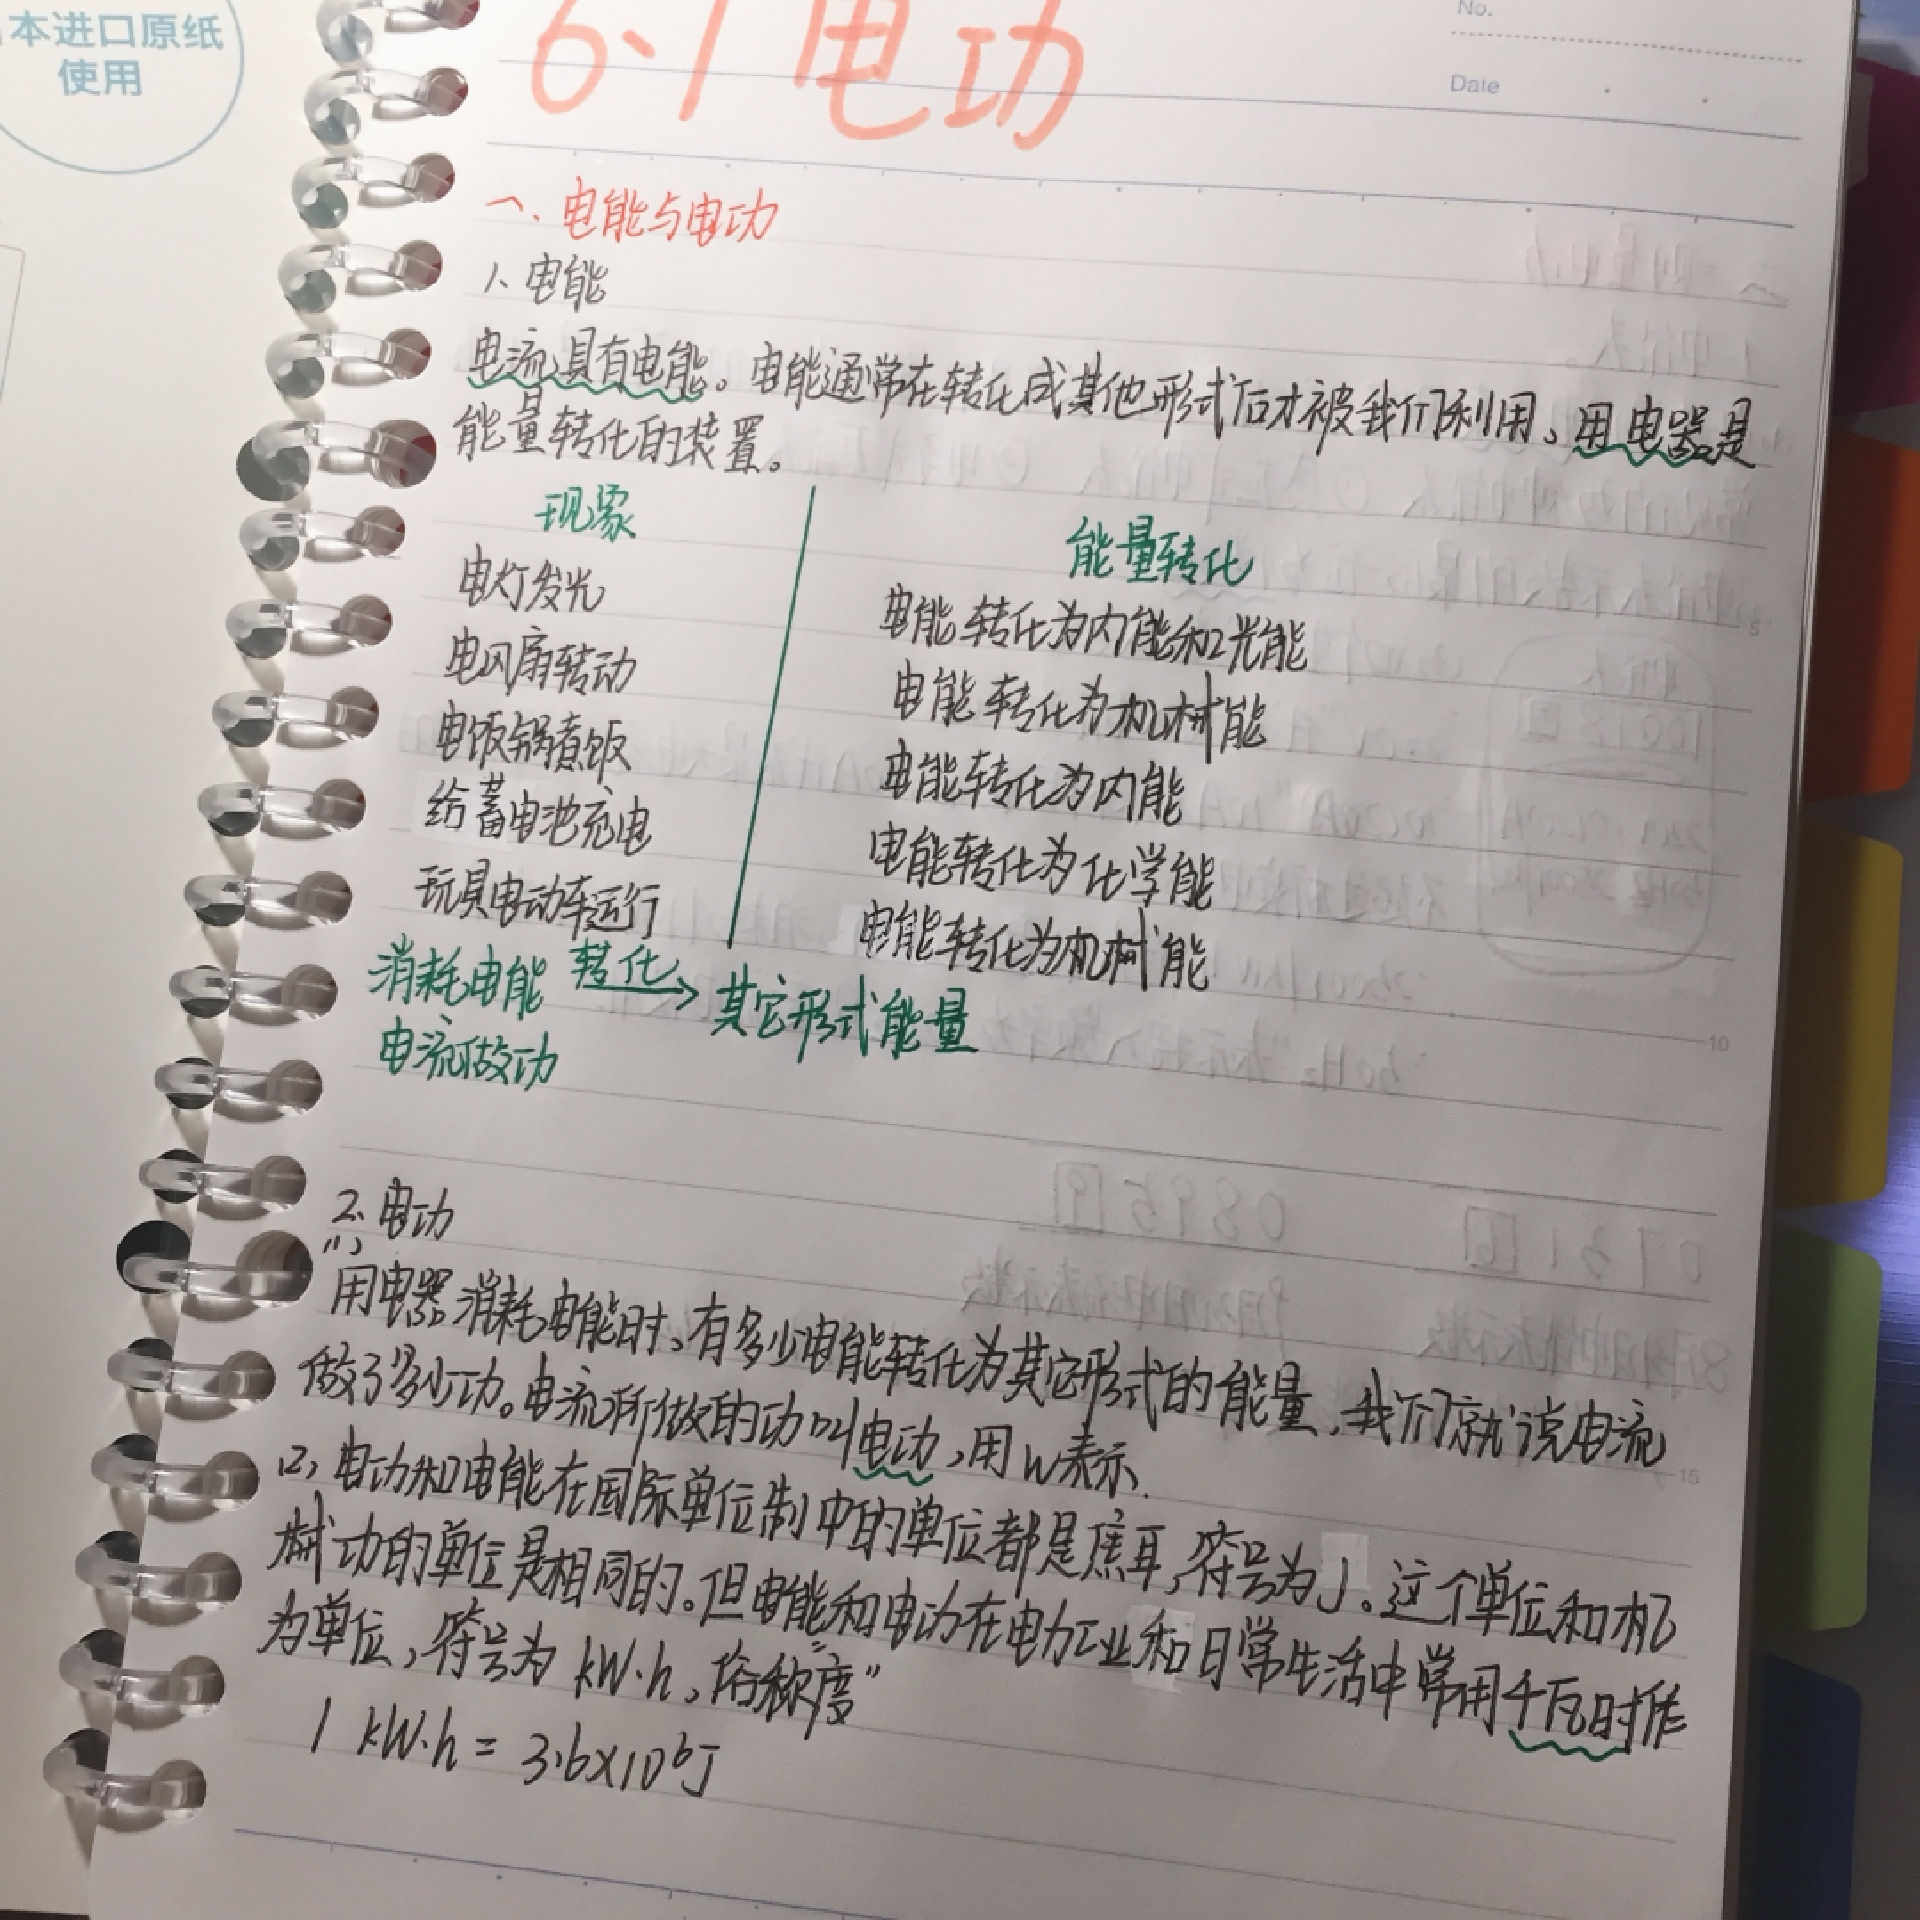 本进口原纸
使用
No.
Date
6.1 电功
一、电能与电功
1、电能
电流具有电能。电能通常在转化成其他形式后才被我们利用。用电器是
能量转化的装置。
现象 能量转化
电灯发光 电能转化为内能和光能
电风扇转动 电能转化为机械能
电饭锅煮饭 电能转化为内能
给蓄电池充电 电能转化为化学能
玩具电动车运行 电能转化为机械能
消耗电能 转化→ 其它形式能量
电流做功
10
2、电功
(1)
用电器消耗电能时、有多少电能转化为其它形式的能量,我们就说电流
做了多少功。电流所做的功叫电功,用W表示、
15
(2)电功和电能在国际单位制中的单位都是焦耳,符号为J。这个单位和机
械功的单位是相同的。但电能和电功在电力工业和日常生活中常用千瓦时作
为单位,符号为 kW·h,俗称“度”
1 kW·h = 3.6×10⁶J